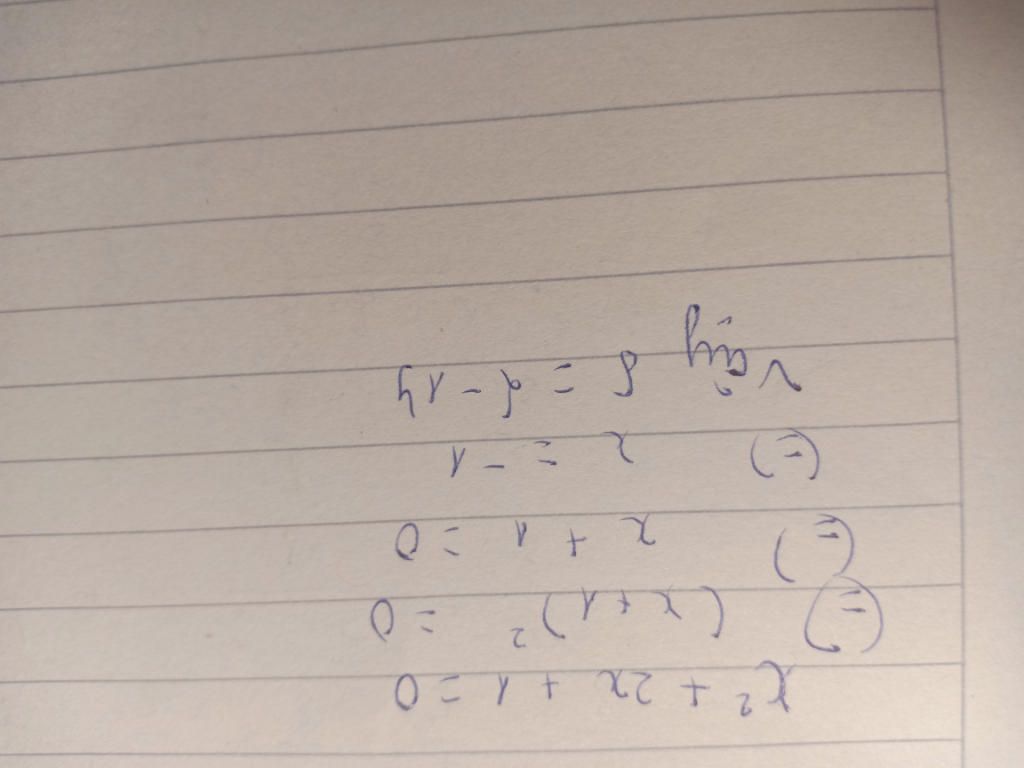 x² + 2x + 1 = 0
(=) (x+1)² = 0
(=) x + 1 = 0
(=) x = -1
Vậy S = {-1}